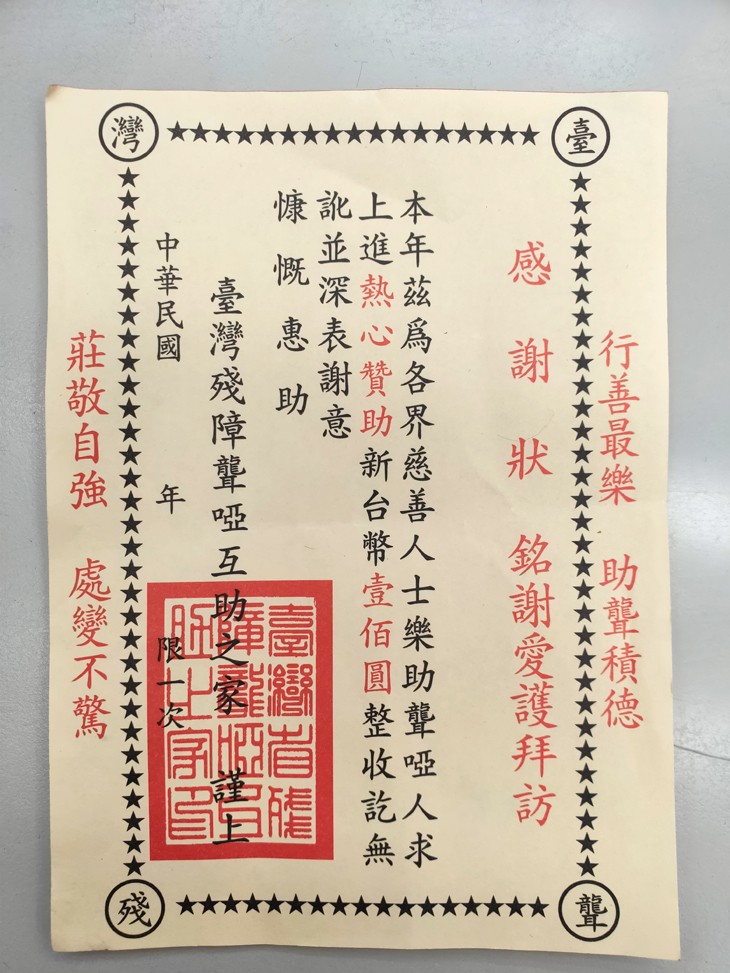 臺
灣
行善最樂 助聾積德
感謝狀 銘謝愛護拜訪
本年茲爲各界慈善人士樂助聾啞人求
上進熱心贊助新台幣壹佰圓整收訖無
訛並深表謝意
慷慨惠助
臺灣殘障聾啞互助之家 謹上
中華民國 年 限一次
臺灣省殘
障聾啞互
助之家印
莊敬自強 處變不驚
聾
殘